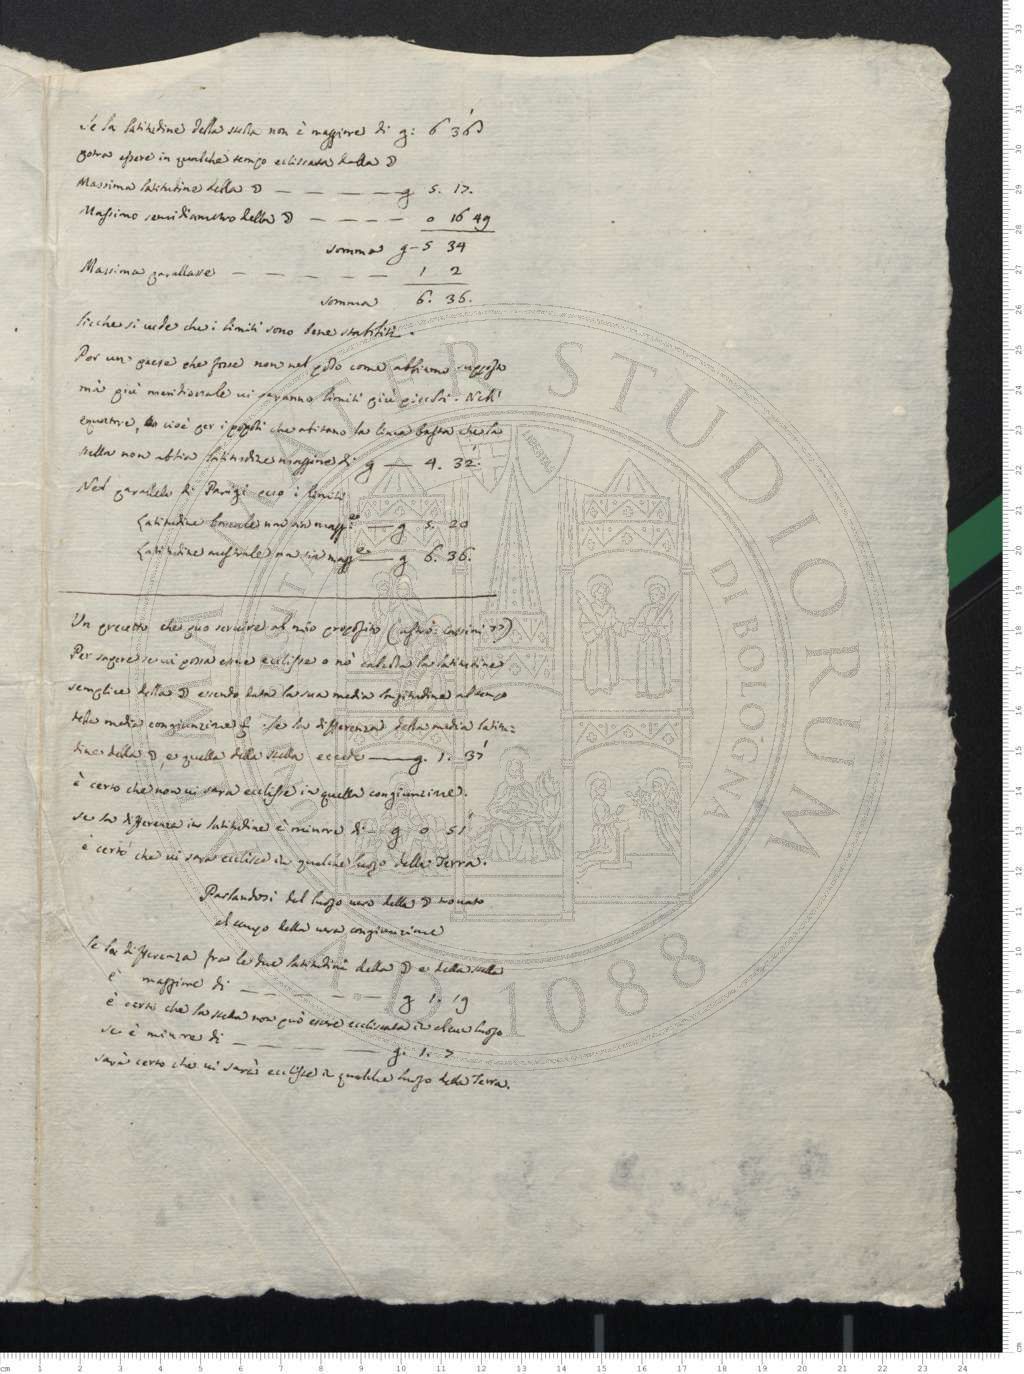 Se la latitudine della stella non è maggiore di g: 6 36'
potra essere in qualche tempo eclissata dalla ☽
Massima latitudine della ☽ — — — — — g 5. 17.
Massimo semidiametro della ☽ — — — — 0 16 49
somma g - 5 34
Massima parallasse — — — — — — 1 2
somma 6. 36.
sicche si vede che i limiti sono bene stabiliti.
Per un paese che fosse non nel polo come abbiamo supposto
mà più meridionale vi saranno limiti più piccoli. Nell'
equatore, cioè per i popoli che abitano la linea basta che la
stella non abbia latitudine maggiore di g — 4. 32'
Nel parallelo di Parigi ecco i limiti
Latitudine boreale non sia magg.re — g 5. 20
Latitudine australe non sia magg.re — g 6. 36.
Un precetto che può servire al mio proposito (astro: Cassini
Per sapere se vi possa essere eclisse o nò calcola la latitudine
semplice della ☽ essendo data la sua media longitudine al tempo
della media congiunzione Se la differenza della media latitu=
dine della ☽, e quella della stella eccede — g. 1. 37'
è certo che non vi sara eclisse in quella congiunzione.
se la differenza in latitudine è minore di — g 0 51'
è certo che vi sara eclisse in qualche luogo della Terra.
Parlandosi del luogo vero della ☽ trovato
al tempo della vera congiunzione
Se la differenza fra le due latitudini della ☽ e della stella
è maggiore di — — — — — — g 1. 19
è certo che la stella non può essere eclissata in alcun luogo
se è minore di — — — — g. 1. 7
sarà certo che vi sarà eclisse in qualche luogo della Terra.
ALMA MATER STUDIORUM
DI BOLOGNA
A.D. 1088